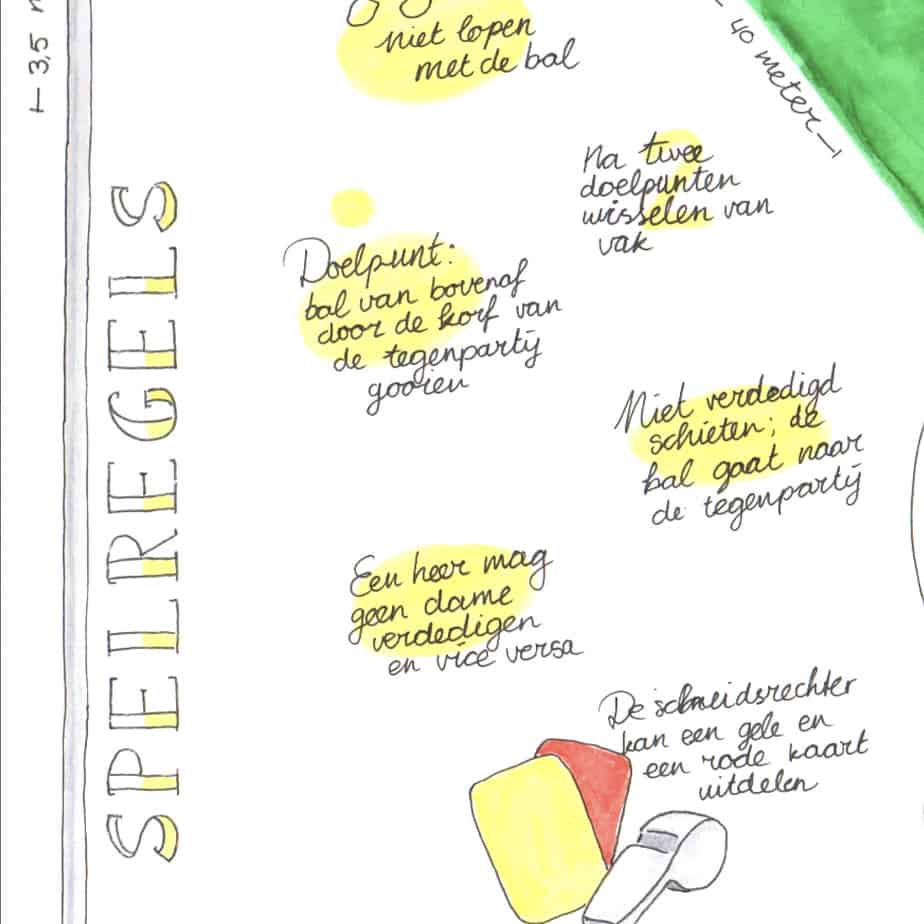 3,5
SPELREGELS
niet lopen
met de bal
40 meter
Na twee
doelpunten
wisselen van
vak
Doelpunt:
bal van bovenaf
door de korf van
de tegenpartij
gooien
Niet verdedigd
schieten; de
bal gaat naar
de tegenpartij
Een heer mag
geen dame
verdedigen
en vice versa
De scheidsrechter
kan een gele en
een rode kaart
uitdelen